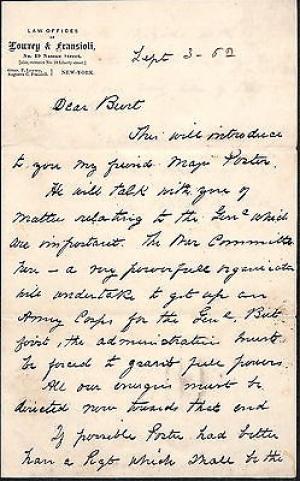 LAW OFFICES
OF
& Fransioli,
No. 19 Nassau Street,
NEW-YORK.
Sept 3 - 62
Dear Burt
This will introduce
to you my friend Maj Porter.
He will talk with you of
matters relating to the Genl which
are important. The War Committee
here - a very powerfull organization
will undertake to get up an
Army Corps for the Genl. But
first, the administration must
be forced to grant full powers
All our energies must be
directed now towards that end
If possible Porter had better
have a Regt which shall be the